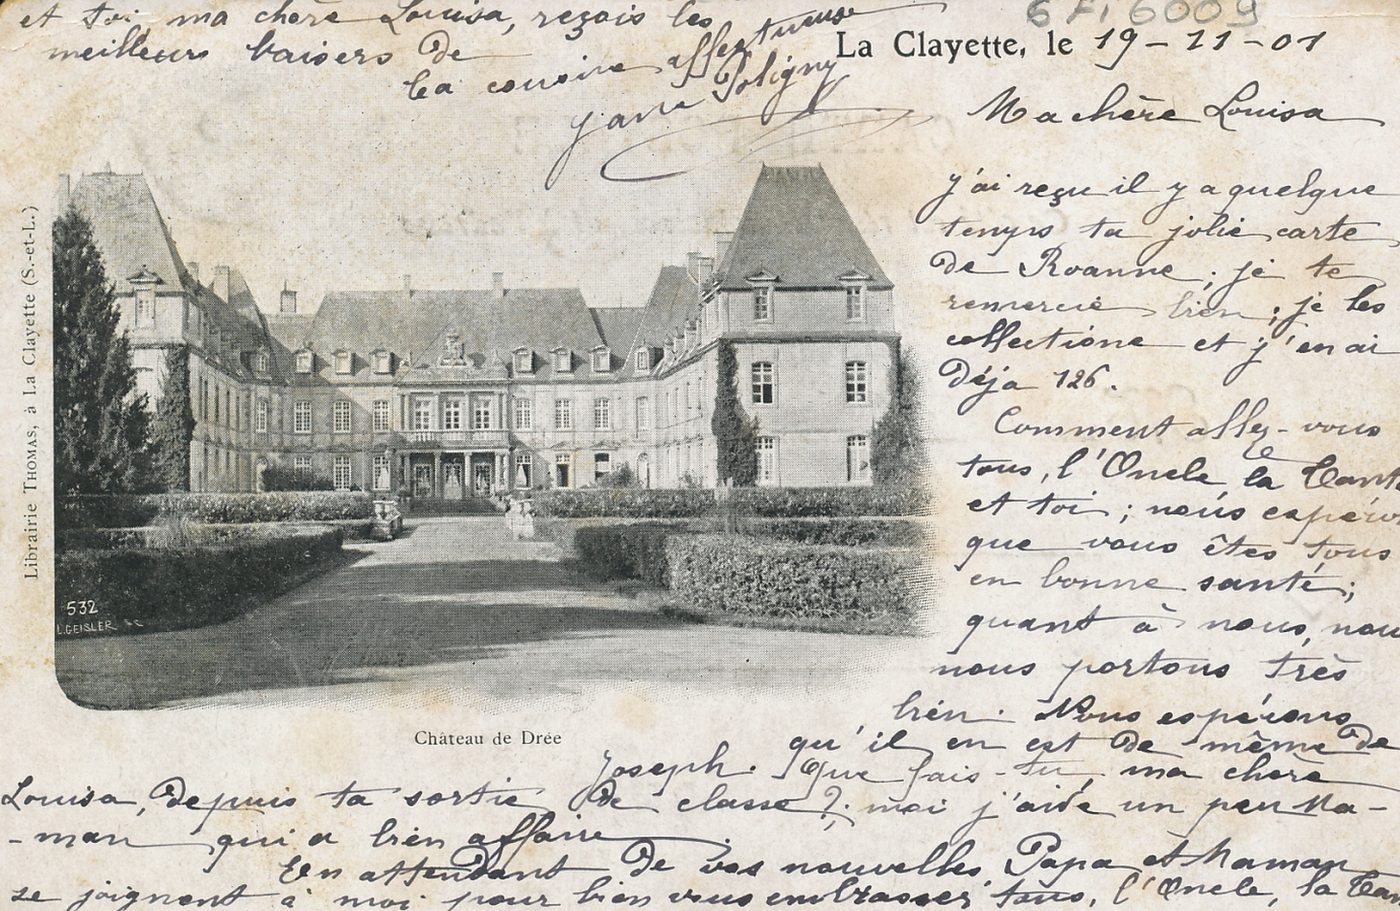 6 Fi 6009
La Clayette, le 19-11-01
Ma chère Louisa
J'ai reçu il y a quelque
temps ta jolie carte
de Roanne; je te
remercie bien; je les
collectione et j'en ai
déja 126.
Comment allez-vous
tous, l'Oncle la Tante
et toi; nous espérons
que vous êtes tous
en bonne santé;
quant à nous, nous
nous portons très
bien. Nous espérons
qu'il en est de même de
Joseph. Que fais-tu, ma chère
Louisa, depuis ta sortie de classe?; moi j'aide un peu Ma-
-man qui a bien affaire
En attendant de vos nouvelles Papa et Maman
se joignent à moi pour bien vous embrasser tous, l'Oncle, la Tante
et toi ma chère Louisa, reçois les
meilleurs baisers de
ta cousine affectueuse
Poligny
Librairie THOMAS, à La Clayette (S.-et-L.)
532
L. GEISLER SC
Château de Drée